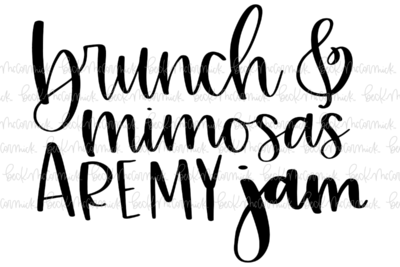 brunch &
mimosas
ARE MY jam